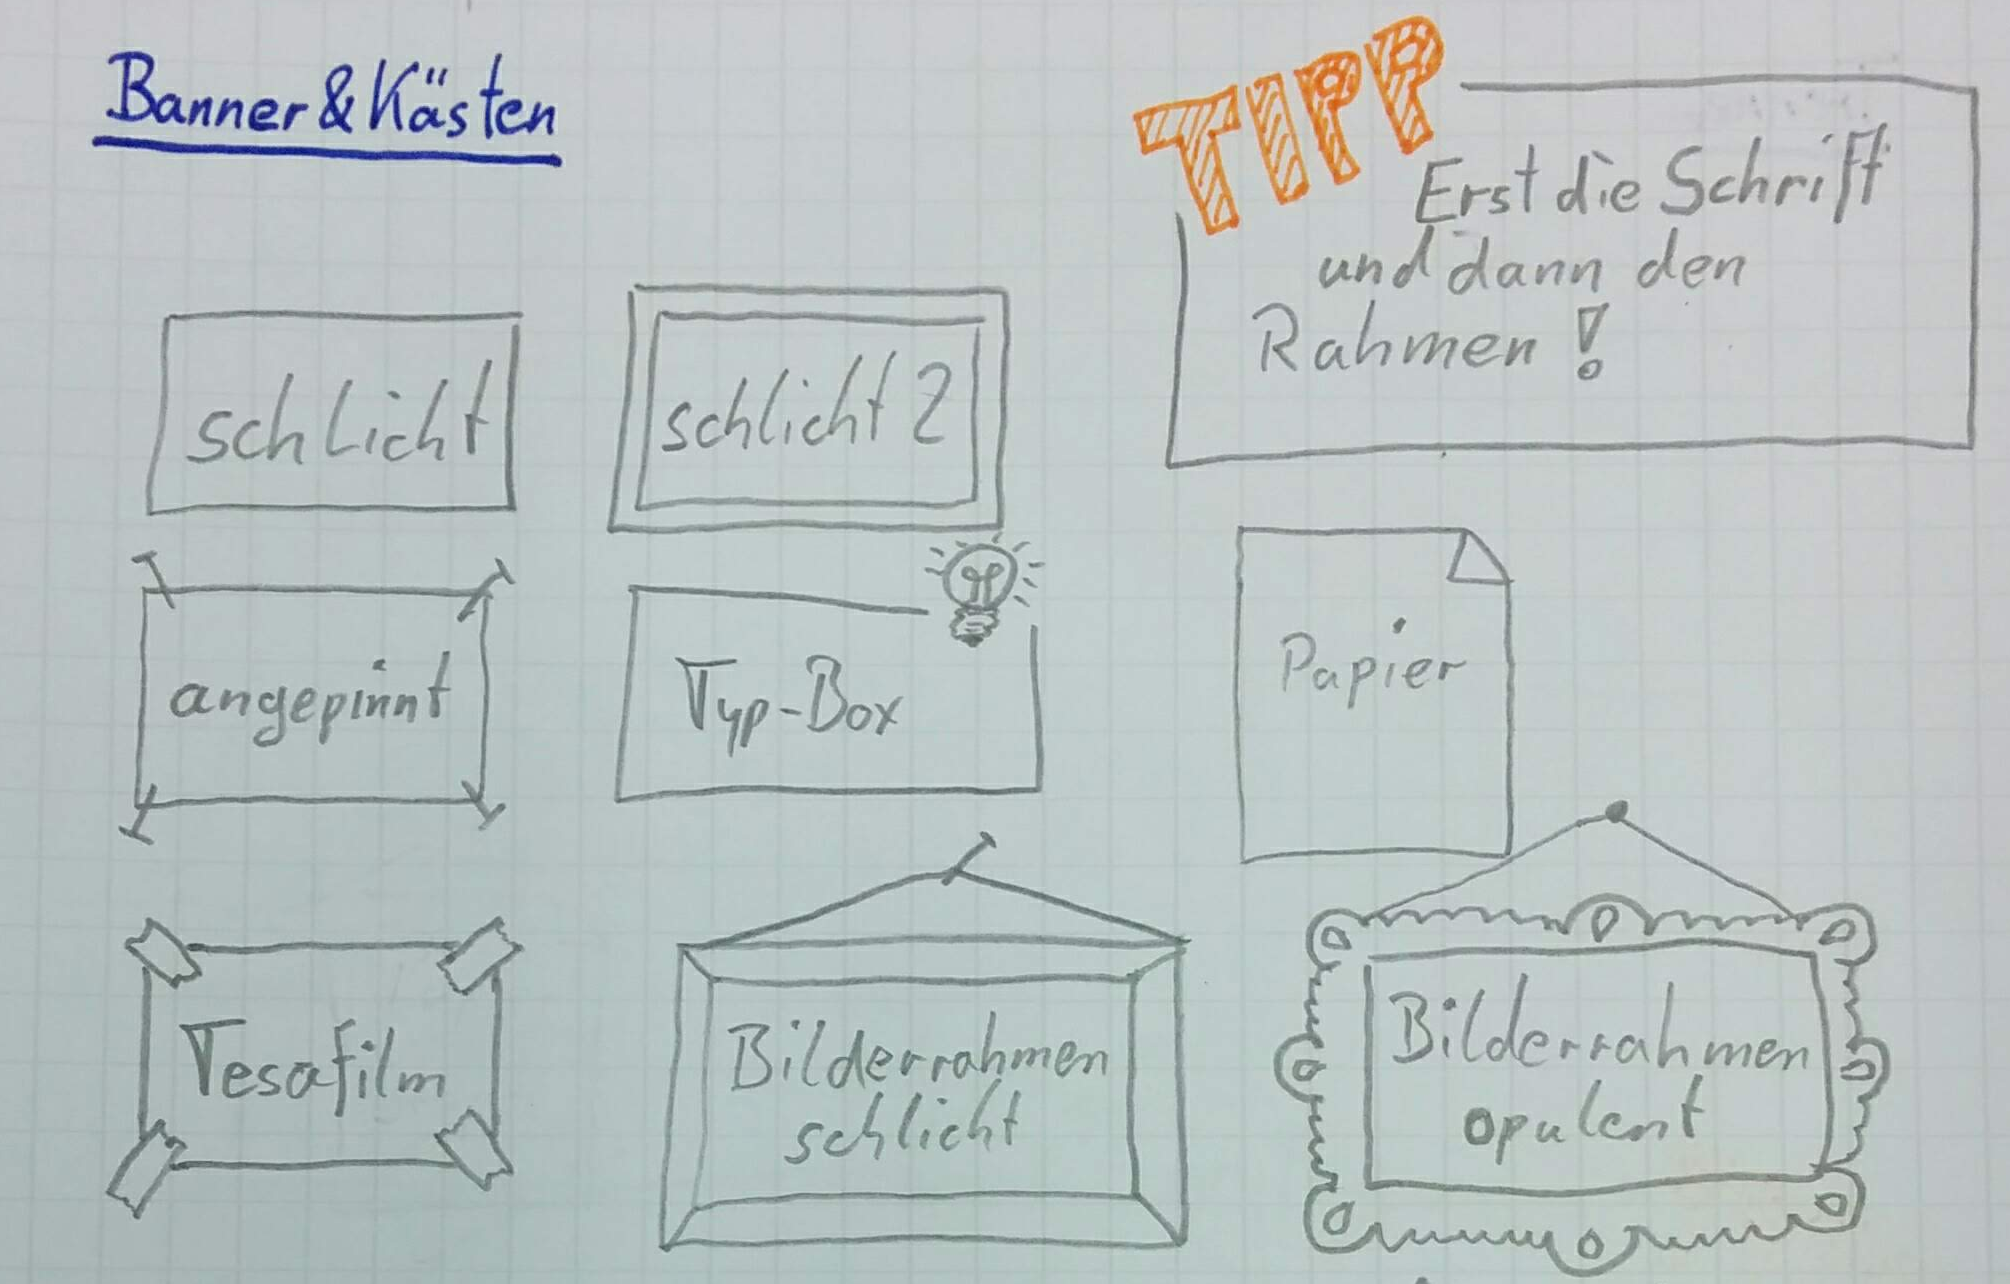 Banner & Kästen
TIPP
Erst die Schrift
und dann den
Rahmen!
schlicht
schlicht 2
angepinnt
Typ-Box
Papier
Tesafilm
Bilderrahmen
schlicht
Bilderrahmen
opulent